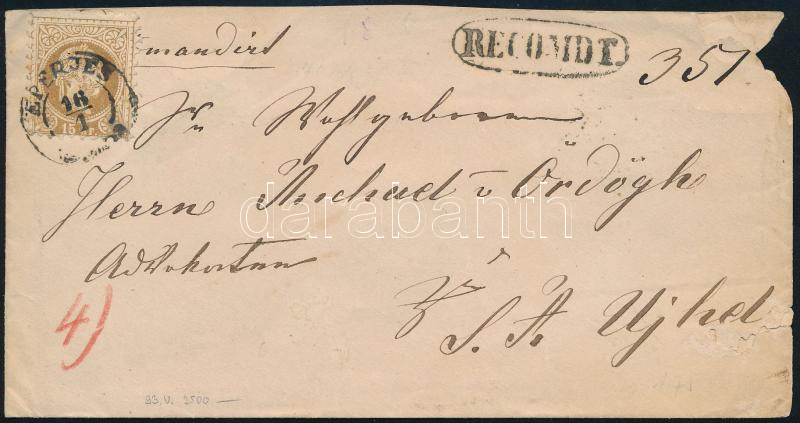 RECOMDT.
351
EPERJES
16
1
15
Wohlgeboren
Herrn Michael v Ordögh
Advokaten
S. A. Ujhel
4)
darabanth
33,V. 2500 —